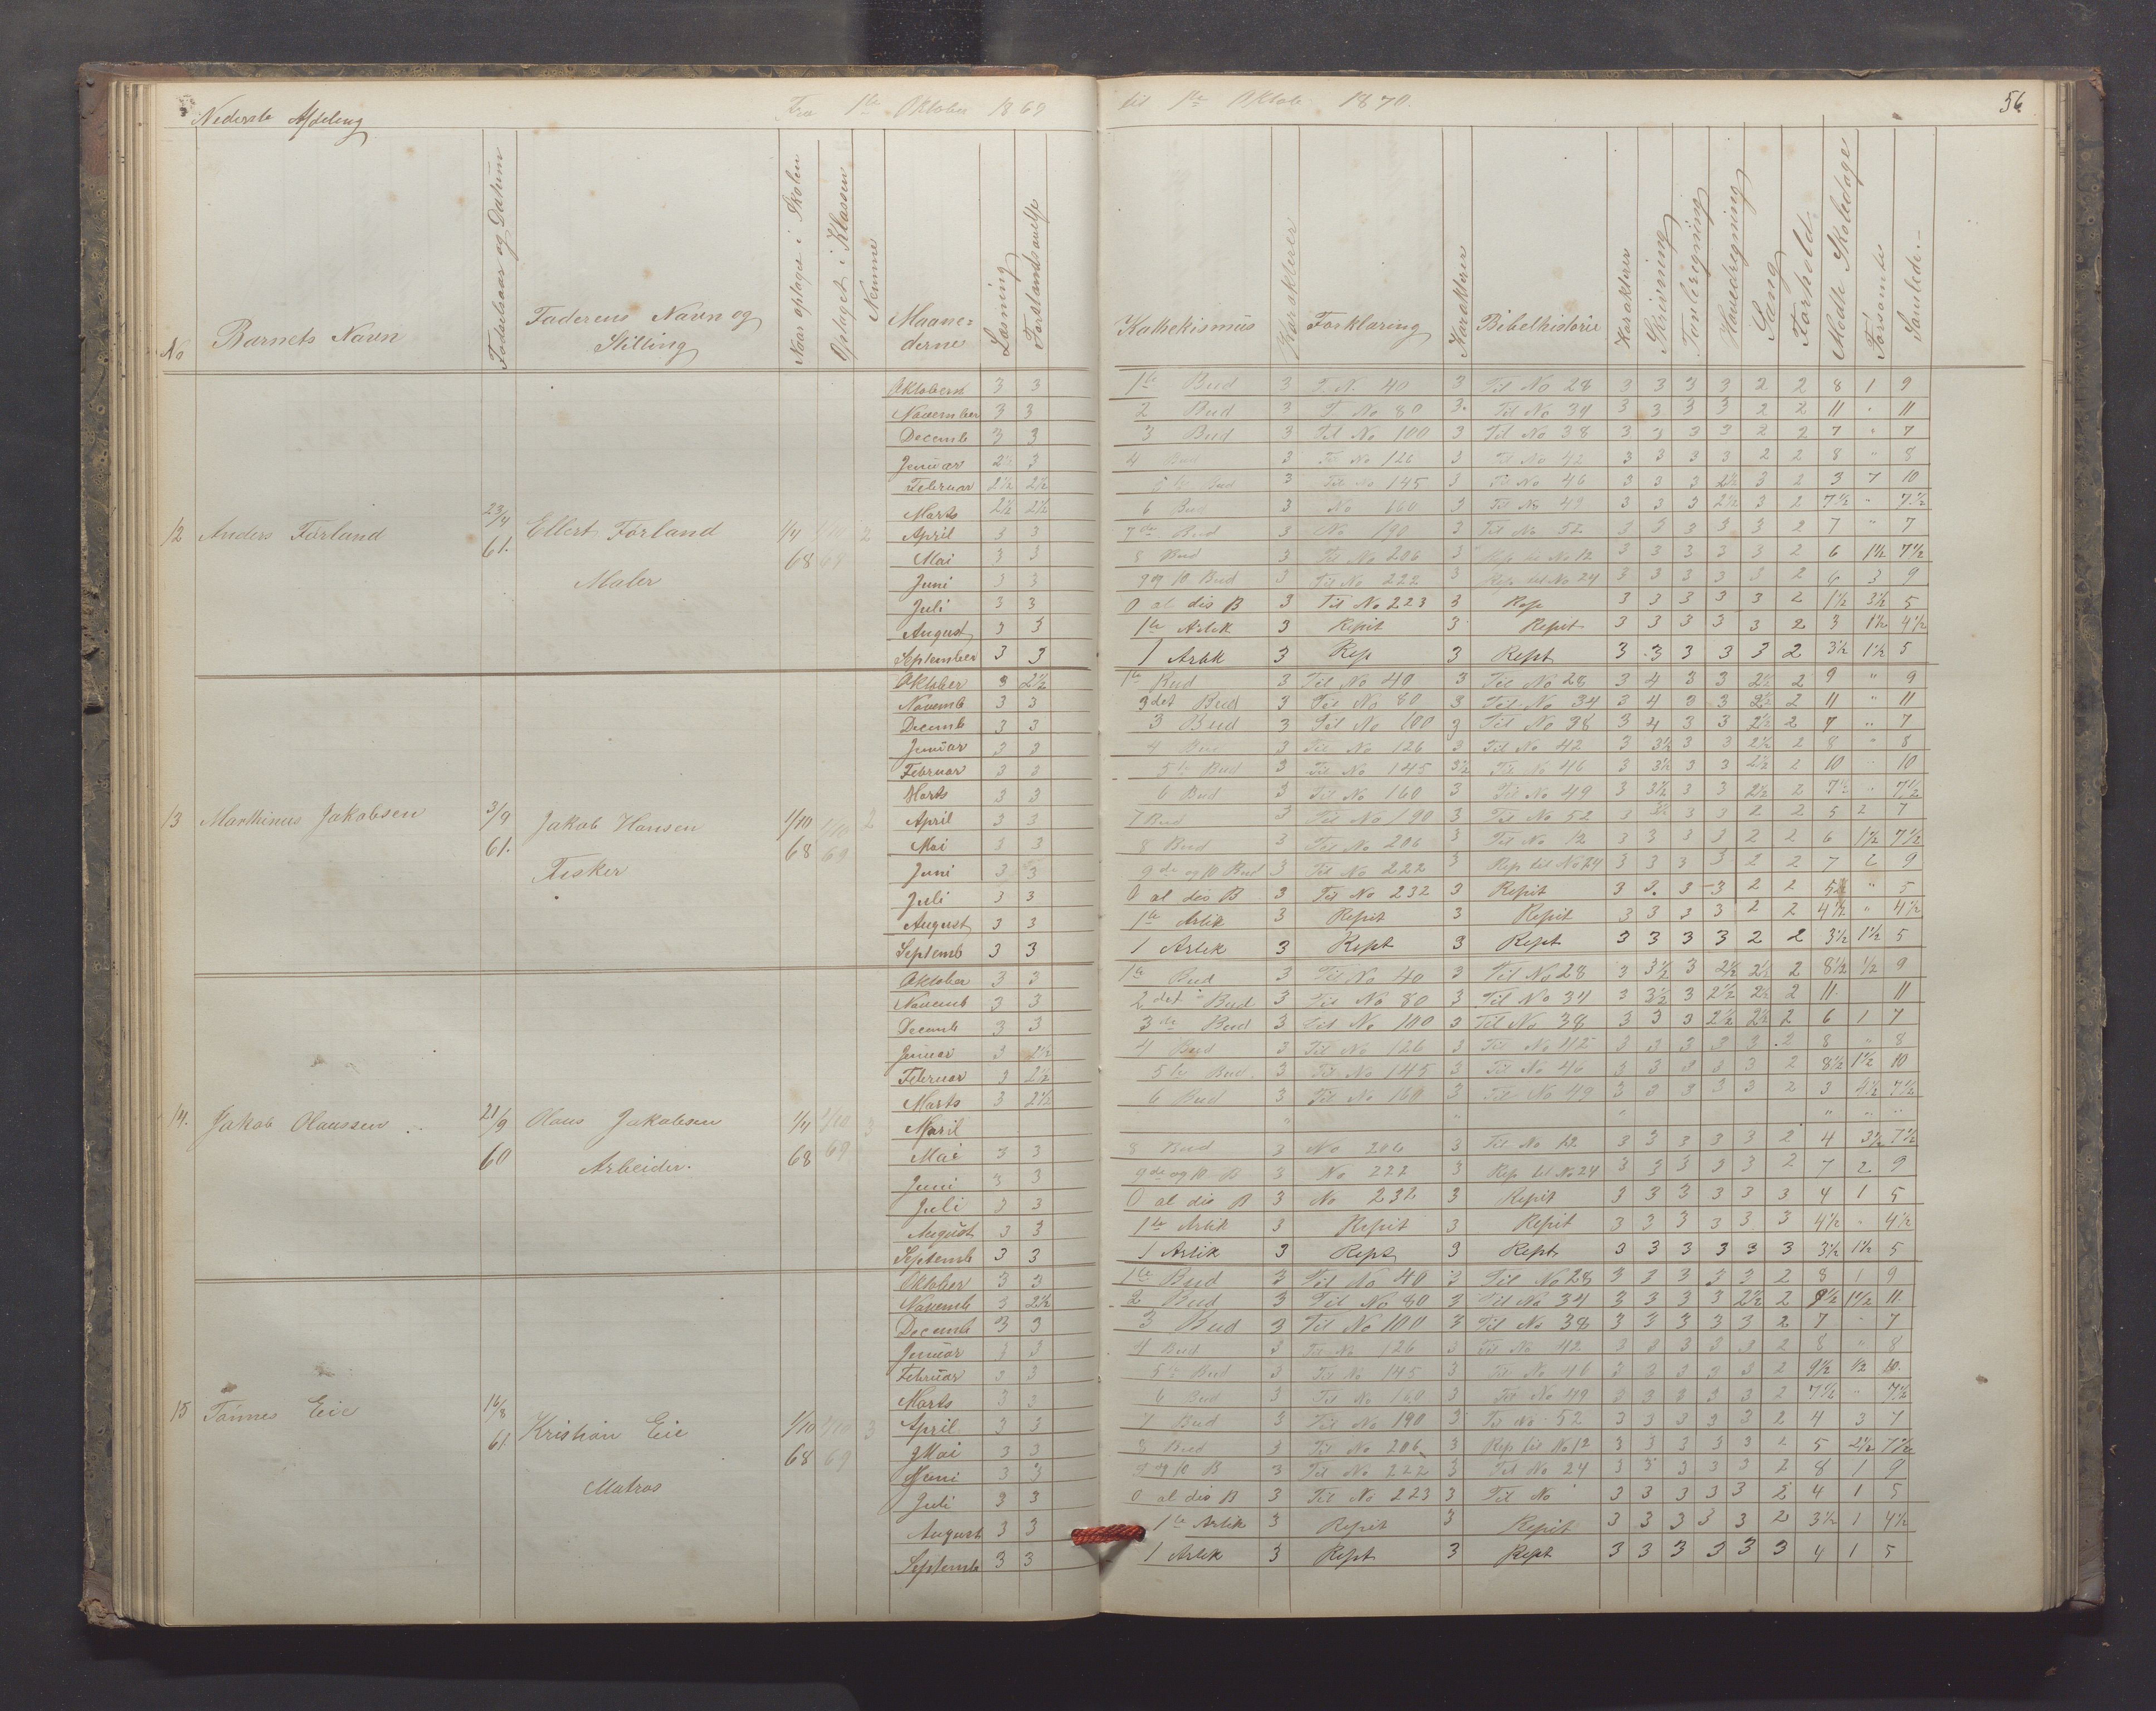 Nederste Afdeling Fra 1te Oktober 1869 til 1te Oktob. 1870. 56
No Barnets Navn Fødselsaar og Datum Faderens Navn og Stilling Naar optaget i Skolen Optaget i Klassen Nemme Maanederne Læsning Forstandsøvelse Kathekismus Karakterer Forklaring Karakterer Bibelhistorie Karakterer Skrivning Tavleregning Hovedregning Sang Forhold Mødte Skoledage Forsømte Samlede
12 Anders Førland 23/4 61. Ellert Førland Maler 1/4 68 1/10 69 2
Oktobern 3 3 1te Bud 3 T. N. 40 3 Til No 28 3 3 3 3 2 2 8 1 9
November 3 3 2 Bud 3 T. No 80 3. Til No 34 3 3 3 3 2 2 11 " 11
Decemb 3 3 3 Bud 3 Til No 100 3 Til No 38 3 3 3 3 2 2 7 " 7
Januar 2½ 3 4 Bud 3 Til No 126 3 Til No 42 3 3 3 3 2 2 8 " 8
Februar 2½ 2½ 5te Bud 3 Til No 145 3 Til No 46 3 3 3 2½ 3 2 3 7 10
Marts 2½ 2½ 6 Bud 3 No 160 3 Til No 49 3 3 3 2½ 3 2 7½ " 7½
April 3 3 7de Bud 3 No 190 3 Til No 52 3 3 3 3 3 2 7 " 7
Mai 3 3 8 Bud 3 Til No 206 3 Rep til No 12 3 3 3 3 3 2 6 1½ 7½
Juni 3 3 9 og 10 Bud 3 Til No 222 3 Rep til No 24 3 3 3 3 3 2 6 3 9
Juli 3 3 O al dis B 3 Til No 223 3 Rep 3 3 3 3 3 2 1½ 3½ 5
August 3 3 1te Artik 3 Repit 3 Repit 3 3 3 3 3 2 3 1½ 4½
September 3 3 1 Artik 3 Rep 3 Rept 3 3 3 3 3 2 3½ 1½ 5
13 Marthinus Jakobsen 3/9 61. Jakob Hansen Fisker 1/10 68 1/10 69 2
Oktober 3 2½ 1te Bud 3 Til No 40 3 Til No 28 3 4 3 3 2½ 2 9 " 9
Novemb 3 3 2det Bud 3 Til No 80 3 Til No 34 3 4 3 3 2½ 2 11 " 11
Decemb 3 3 3 Bud 3 Til No 100 3 Til No 38 3 4 3 3 2½ 2 7 " 7
Januar 3 3 4 Bud 3 Til No 126 3 Til No 42 3 3½ 3 3 2½ 2 8 " 8
Februar 3 3 5te Bud 3 Til No 145 3½ Til No 46 3 3½ 3 3 2½ 2 10 " 10
Marts 3 3 6 Bud 3 Til No 160 3 Til No 49 3 3½ 3 3 2½ 2 7½ " 7½
April 3 3 7 Bud 3 Til No 190 3 Til No 52 3 3½ 3 3 2 2 5 2 7
Mai 3 3 8 Bud 3 Til No 206 3 Til No 12 3 3 3 3 2 2 6 1½ 7½
Juni 3 3 9de og 10 Bud 3 Til No 222 3 Rep til No 24 3 3 3 3 2 2 7 2 9
Juli 3 3 O al dis B 3 Til No 232 3 Repit 3 3. 3 3 2 2 5 " 5
August 3 3 1te Artik 3 Repit 3 Repit 3 3 3 3 2 2 4½ " 4½
Septemb 3 3 1 Artik 3 Rept 3 Rept 3 3 3 3 2 2 3½ 1½ 5
14. Jakob Olaussen 21/9 60 Olaus Jakobsen Arbeider. 1/4 68 1/10 69 3
Oktober 3 3 1te Bud 3 Til No 40 3 Til No 28 3 3½ 3 2½ 2½ 2 8½ ½ 9
Novemb 3 3 2det Bud 3 Til No 80 3 Til No 34 3 3½ 3 2½ 2½ 2 11. 11
Decemb 3 3 3de Bud 3 Til No 100 3 Til No 38 3 3 3 2½ 2½ 2 6 1 7
Januar 3 2½ 4 Bud 3 Til No 126 3 Til No 42 3 3 3 3 3 2 8 " 8
Februar 3 2½ 5te Bud. 3 Til No 145 3 Til No 46 3 3 3 3 3 2 8½ 1½ 10
Marts 3 2½ 6 Bud 3 Til No 160 3 Til No 49 3 3 3 3 3 2 3 4½ 7½
April " " " " " "
Mai 3 3 8 Bud 3 No 206 3 Til No 12 3 3 3 3 3 2 4 3½ 7½
Juni 3 3 9de og 10 B 3 No 222 3 Rep til No 24 3 3 3 3 3 2 7 2 9
Juli 3 3 O al dis B 3 No 232 3 Repit 3 3 3 3 3 3 4 1 5
August 3 3 1te Artik 3 Repit 3 Repit 3 3 3 3 3 3 4½ " 4½
Septemb 3 3 1 Artik 3 Rept 3 Rept 3 3 3 3 3 3 3½ 1½ 5
15 Tønnes Eie 16/8 61. Kristian Eie Matros 1/10 68 1/10 69 3
Oktober 3 3 1te Bud 3 Til No 40 3 Til No 28 3 3 3 3 3 2 8 1 9
Novemb 3 2½ 2 Bud 3 Til No 80 3 Til No 34 3 3 3 3 2½ 2 9½ 1½ 11
Decemb 3 3 3 Bud 3 Til No 100 3 Til No 38 3 3 3 3 3 2 7 " 7
Januar 3 3 4 Bud 3 Til No 126 3 Til No 42 3 3 3 3 3 2 8 " 8
Februar 3 3 5te Bud 3 Til No 145 3 Til No 46 3 3 3 3 3 2 9½ ½ 10.
Marts 3 3 6 Bud 3 Til No 160 3 Til No 49 3 3 3 3 3 2 7½ " 7½
April 3 3 7 Bud 3 Til No 190 3 Til No 52 3 3 3 3 3 2 4 3 7
Mai 3 3 8 Bud 3 Til No 206 3 Rep til No 12 3 3 3 3 3 2 5 2½ 7½
Juni 3 3 9 og 10 B 3 Til No 222 3 Til No 24 3 3 3 3 3 2 8 1 9
Juli 3 3 O al dis B 3 Til No 223 3 Til No 3 3 3 3 3 2 4 1 5
August 3 3 1te Artik 3 Repit 3 Repit 3 3 3 3 3 2 3½ 1 4½
Septemb 3 3 1 Artik 3 Rept 3 Rept 3 3 3 3 3 3 4 1 5